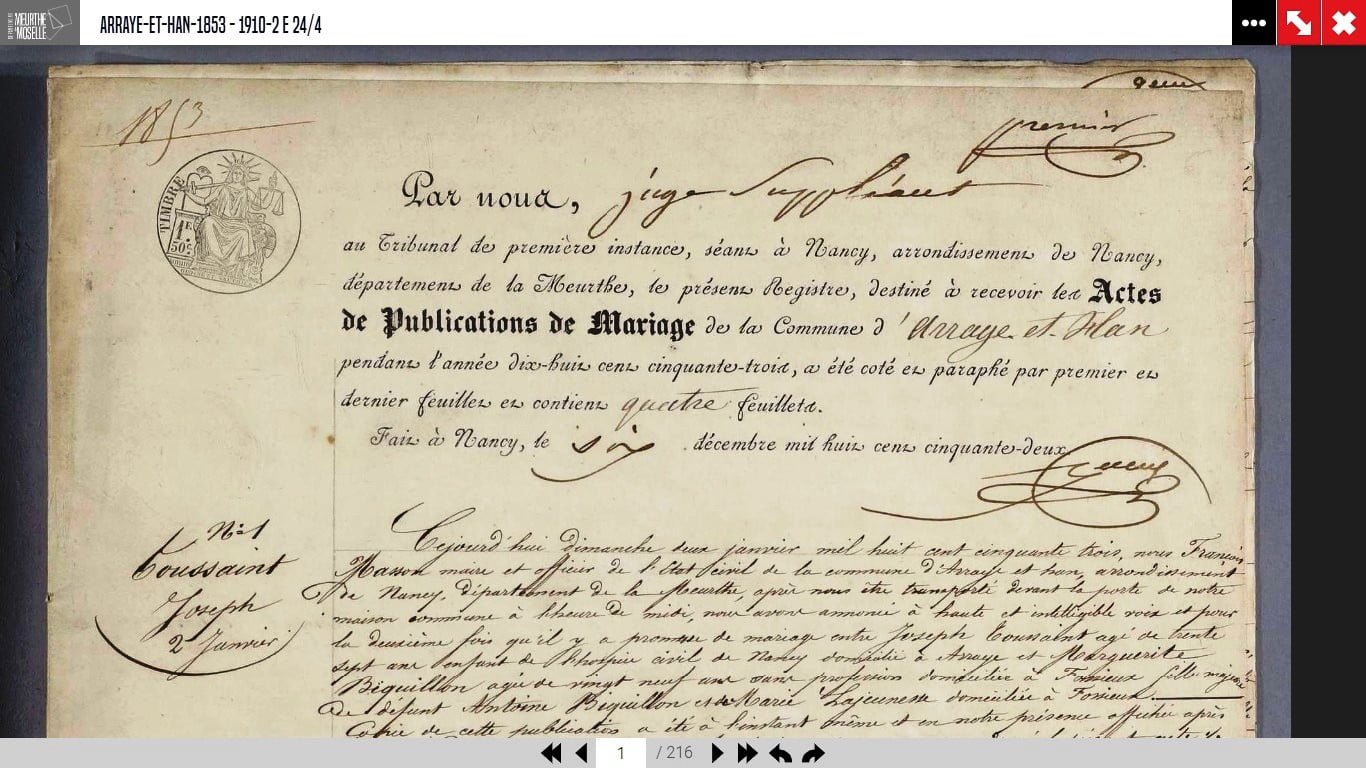 MEURTHE
MOSELLE
ARRAYE-ET-HAN-1853 - 1910-2 E 24/4
1853
premier
TIMBRE
1F.
50c.
Par nous, juge Suppléant
au Tribunal de première instance, séant à Nancy, arrondissement de Nancy,
département de la Meurthe, le présent Registre, destiné à recevoir les Actes
de Publications de Mariage de la Commune d'Arraye et Han
pendant l'année dix-huit cent cinquante-trois, a été coté et paraphé par premier et
dernier feuillet et contient quatre feuillets.
Fait à Nancy, le six décembre mil huit cent cinquante-deux
No 1
Toussaint
Joseph
2 Janvier
Cejourd'hui dimanche deux janvier mil huit cent cinquante trois, nous François
Masson maire et officier de l'Etat civil de la commune d'Arraye et han, arrondissement
de Nancy, département de la Meurthe, après nous être transporté devant la porte de notre
maison commune à l'heure de midi, nous avons annoncé à haute et intelligible voix et pour
la deuxième fois qu'il y a promesse de mariage entre Joseph Toussaint agé de trente
sept ans enfant de l'hospice civil de Nancy domicilié à Arraye et Marguerite
Biquillon agée de vingt neuf ans sans profession domiciliée à Fossieux fille majeure
de défunt Antoine Biquillon et de Marie Lajeunesse domiciliée à Fossieux.
Copie de cette publication a été à l'instant même et en notre présence affichée après
1 / 216